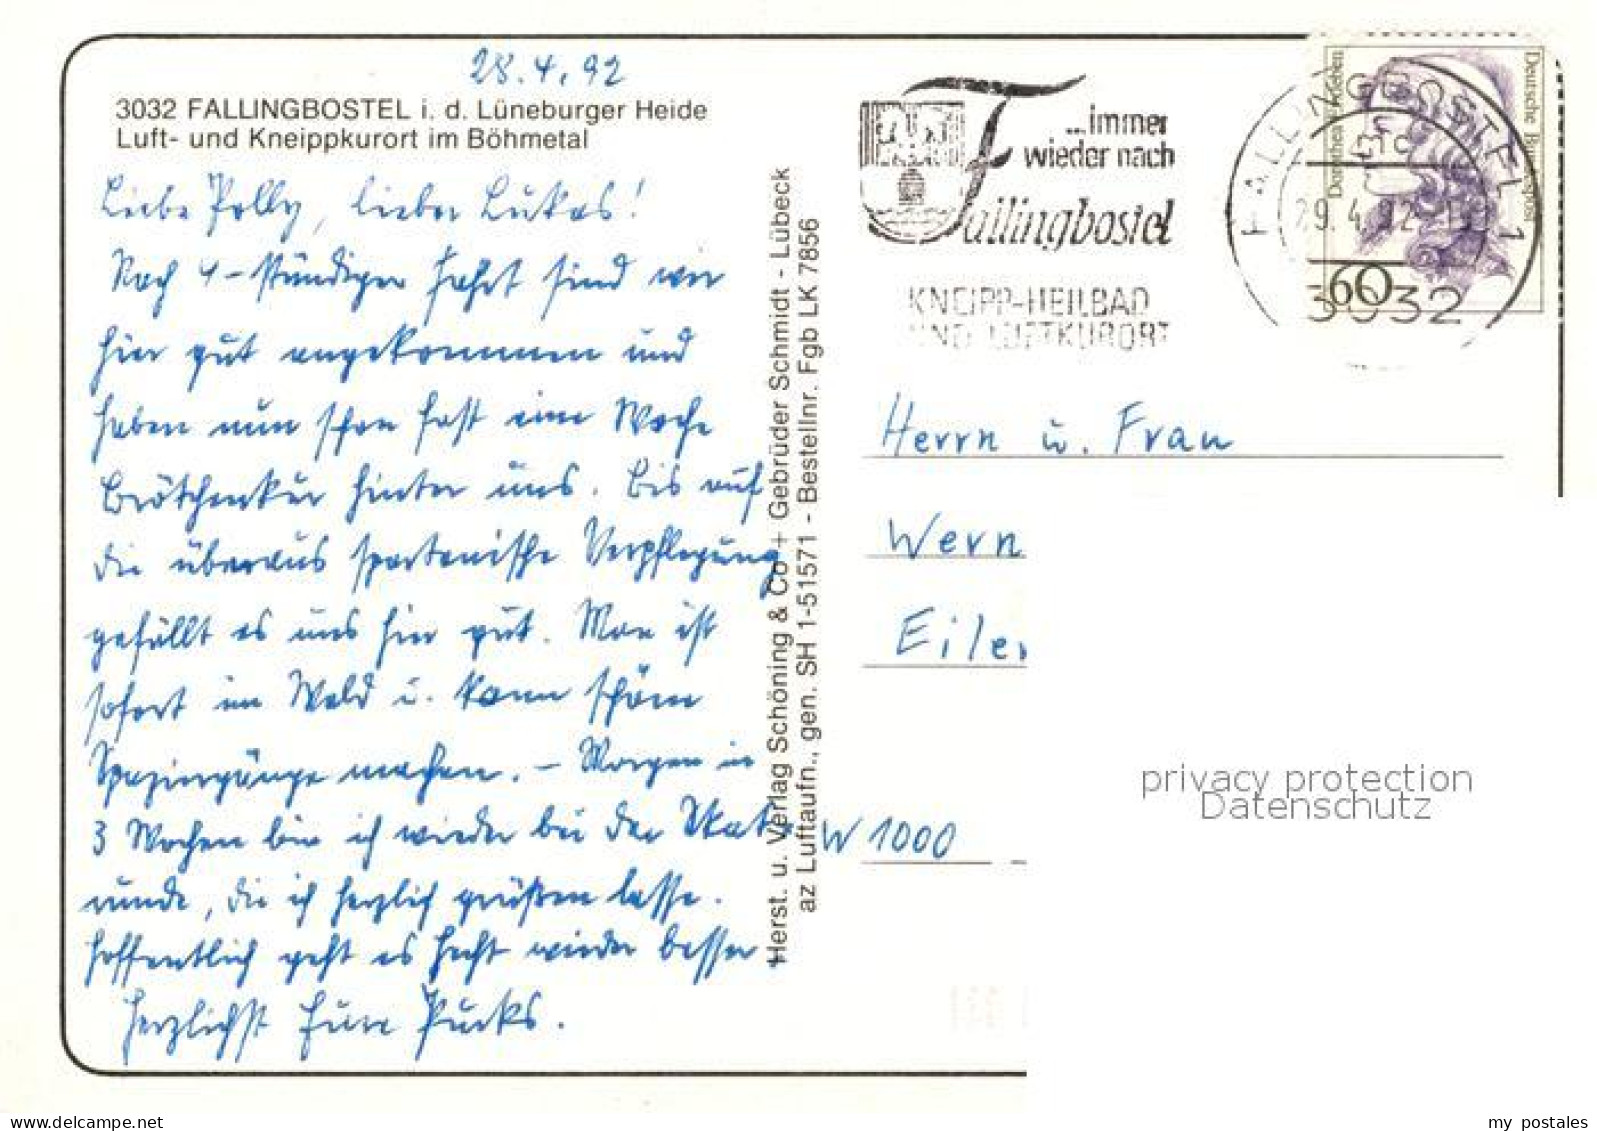 28.4.92
3032 FALLINGBOSTEL i. d. Lüneburger Heide
Luft- und Kneippkurort im Böhmetal
Liebe Polly, lieber Lukas!
Nach 4-stündiger Fahrt sind wir
hier gut angekommen und
haben nun schon fast eine Woche
hinter uns. Bis auf
die überaus spartanische Verpflegung
gefällt es uns hier gut. Man ist
sofort im Wald u. kann schöne
Spaziergänge machen. – Morgen in
3 Wochen bin ich wieder bei der Skat-
runde, die ich herzlich grüßen lasse.
Hoffentlich geht es Hecht wieder besser
Herzlichst Eure Pucks.
Herst. u. Verlag Schöning & Co + Gebrüder Schmidt - Lübeck
az Luftaufn., gen. SH 1-51571 - Bestellnr. Fgb LK 7856
...immer
wieder nach
Fallingbostel
KNEIPP-HEILBAD
UND LUFTKURORT
FALLINGBOSTEL 1
29.4.92
3032
Deutsche Bundespost
Dorothea Erxleben
60
Herrn u. Frau
Wern
Eiler
W 1000
privacy protection
Datenschutz
delcampe.net
my_postales